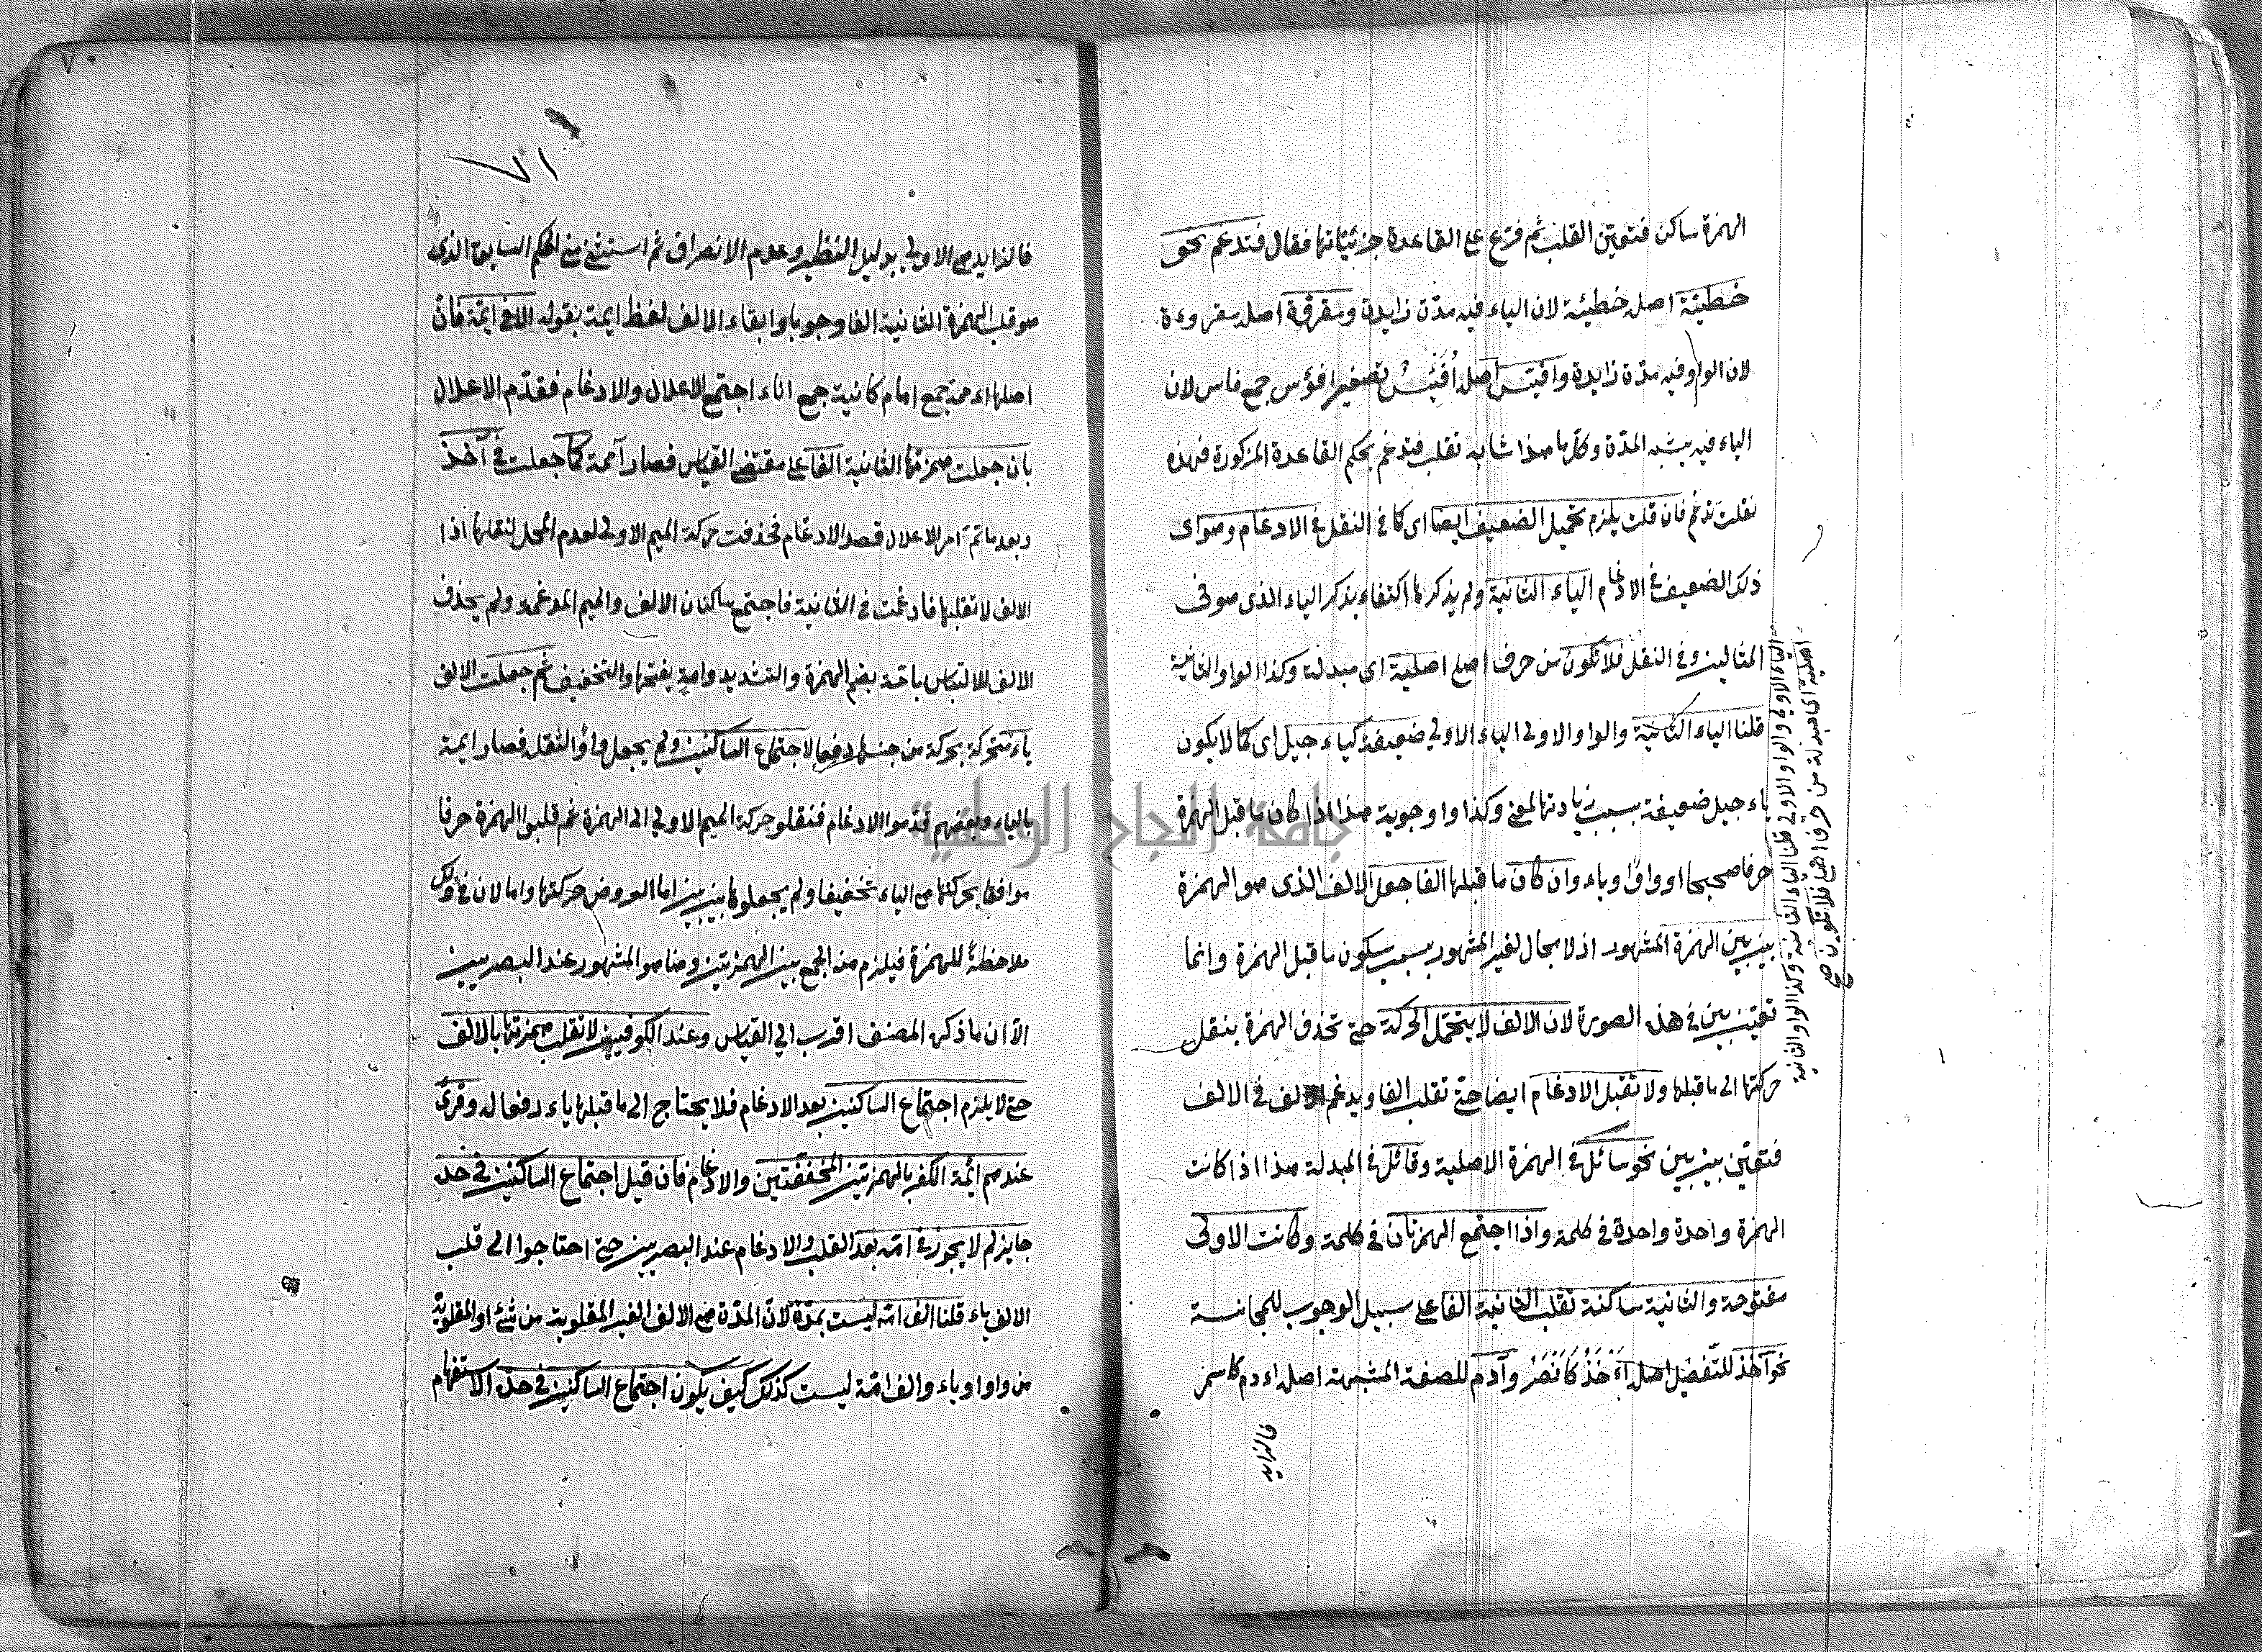 الهمزة ساكن فتعين القلب ثم فرّع على القاعدة جزئياتها فقال فتدغم نحو
خطيّة اصله خطيئة لان الياء فيه مدّة زايدة ومقروّة اصله مقروءة
لان الواو فيه مدّة زايدة وافيّس اصله اُفَيْئِسٌ تصغير افؤس جمع فاس لان
الياء فيه يشبه المدّة وكلّ ما هذا شانه تقلب فتدغم بحكم القاعدة المذكورة فهذه
نقلت تدغم فان قلت يلزم تحميل الضعيف ايضا اى كما فى النقل فى الادغام وهو اى
ذلك الضعيف فى الادغام الياء الثانية ولم يذكرها اكتفاء بذكر الياء الذى هو فى
المثالين وفى النقل فلا تكون من حرف اصلى اصلية اى مبدلة وكذا الواو الثانية
قلنا الياء الثانية والواو الاولى الياء الاولى ضعيفة كياء جيل اى كما لا يكون
ياء جيل ضعيفة بسبب زيادتها لمعنى وكذا واو جوبة هذا اذا كان ما قبل الهمزة
حرفا صحيحا او واوًا وياء وان كان ما قبلها الفا جعل الالف الذى هو الهمزة
بين بين الهمزة المشهور اذ لا مجال لغير المشهور بسبب سكون ما قبل الهمزة وانما
تعيّن بين بين فى هذه الصورة لان الالف لا يتحمّل الحركة حتى تحذف الهمزة بنقل
حركتها الى ما قبلها ولا تقبل الادغام ايضا حتى تقلب الفا ويدغم الالف فى الالف
فتعيّن بين بين نحو سائل فى الهمزة الاصلية وقائل فى المبدلة هذا اذا كانت
الهمزة واحدة واحدة فى كلمة واذا اجتمع الهمزتان فى كلمة وكانت الاولى
مفتوحة والثانية ساكنة تقلب الثانية الفا على سبيل الوجوب للمجانسة
نحو آخذ للتفضيل اصله اَءْخَذُ كَاَنْصَرُ وآدم للصفة المشبهة اصله اءدم كاسمر
فالزايد
الياء الاولى والواو الاولى قلنا الياء الثانية وكذا الواو الثانية
اصلية اى مبدلة من حرف اصلى فلا تكون صح
٧١
فالزايد هى الاولى بدليل النظير وعدم الانصراف ثم استثنى من الحكم السابق الذى
هو قلب الهمزة الثانية الفا وجوبا وابقاء الالف لفظ ايمة بقوله الا فى ايمّة فانّ
اصلها اءممة جمع امام كانية جمع اناء اجتمع الاعلال والادغام فقدّم الاعلال
بان جعلت همزتها الثانية الفا على مقتضى القياس فصار آممة كما جعلت فى آخذ
وبعد ما تمّ امر الاعلال قصد الادغام فحذفت حركة الميم الاولى لعدم المحل لنقلها اذا
الالف لا تقبلها فادغمت فى الثانية فاجتمع ساكنان الالف والميم المدغمة ولم يحذف
الالف للالتباس بامّة بضم الهمزة والتشديد وامةٍ بفتحها والتخفيف ثم جعلت الالف
ياء متحركة بحركة من جنسها دفعا لاجتماع الساكنين ولم يجعل واوًا لثقل فصار ايمة
بالياء وبعضهم قدموا الادغام فنقلو حركة الميم الاولى الى الهمزة ثم قلبوا الهمزة حرفا
موافقا بحركتها هى الياء تخفيفا ولم يجعلوها بين بين اما لعروض حركتها واما لان فى ذلك
ملاحظةً للهمزة فيلزم منه الجمع بين الهمزتين وهذا هو المشهور عند البصريين
الّا ان ما ذكره المصنف اقرب الى القياس وعند الكوفيين لا تقلب همزتها بالالف
حتى لا يلزم اجتماع الساكنين بعد الادغام فلا يحتاج الى ما قبلها ياء دفعا له وقرئ
عندهم ائمّة الكفر بالهمزتين المخففتين والادغام فان قيل اجتماع الساكنين فى حده
جايز لم لا يجوز فى امّة بعد القلب والادغام عند البصريين حتى احتاجوا الى قلب
الالف ياء قلنا الف امّة ليست بمدّة لانّ المدّة هى الالف الغير المقلوبة من شئ او المقلوبة
من واو او ياء والف امّة ليست كذلك كيف يكون اجتماع الساكنين فى حده الاستفهام
جامعة النجاح الوطنية